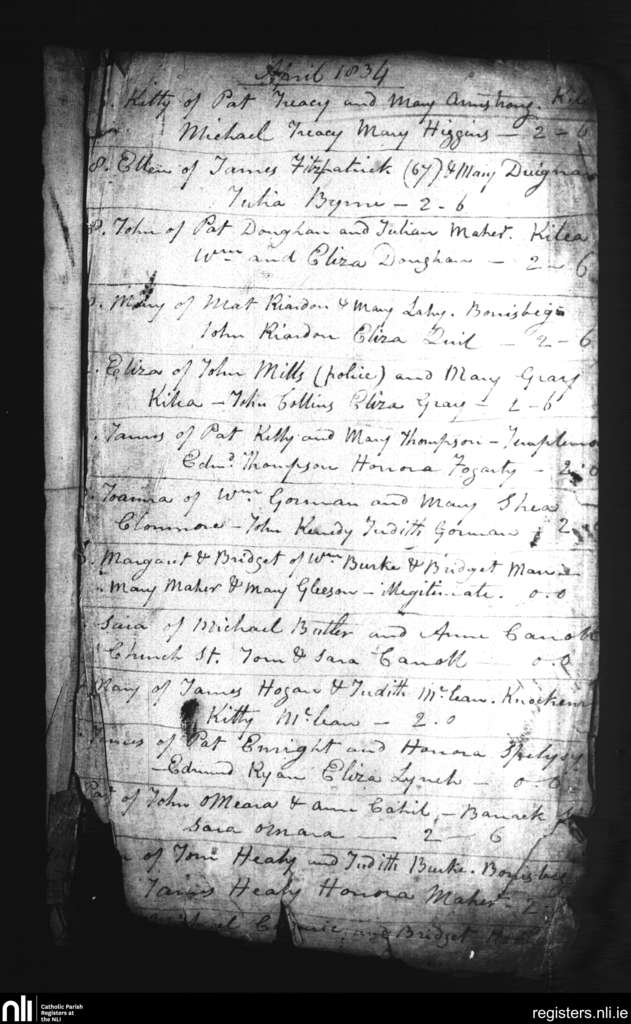 April 1834
Kitty of Pat Treacy and Mary Armstrong. Kil
Michael Treacy Mary Higgins - 2 - 6
8. Ellen of James Fitzpatrick (67) & Mary Duigna
Julia Byrne - 2 - 6
8. John of Pat Doughan and Julian Maher. Kilea
Wm and Eliza Doughan - 2 - 6
Mary of Mat Riardon & Mary Lahy. Borrisbeg
John Riardon Eliza Quil - 2 - 6
Eliza of John Mills (police) and Mary Gray
Kilea - John Collins Eliza Gray - 2 - 6
James of Pat Kelly and Mary Thompson - Templemo
Edmd. Thompson Honora Fogarty - 2. 0
Joanna of Wm Gorman and Mary Shea
Clonmore - John Kenedy Judith Gorman 2
Margaret & Bridget of Wm Burke & Bridget
Mary Maher & Mary Gleeson - Illegitimate. 0. 0
Sara of Michael Butler and Anne Caroll
Church St. Tom & Sara Caroll - 0. 0
Mary of James Hogan & Judith McLean. Knocken
Kitty McLean - 2. 0
James of Pat Enright and Honora
Edmund Ryan Eliza Lynch - 0. 0
Pat of John OMeara & Anne Cahil, - Barrack
Sara OMara - 2 - 6
of Tom Healy and Judith Burke. Borrisbeg
James Healy Honora Maher - 2 -
and Bridget
nli
Catholic Parish
Registers at
the NLI
registers.nli.ie